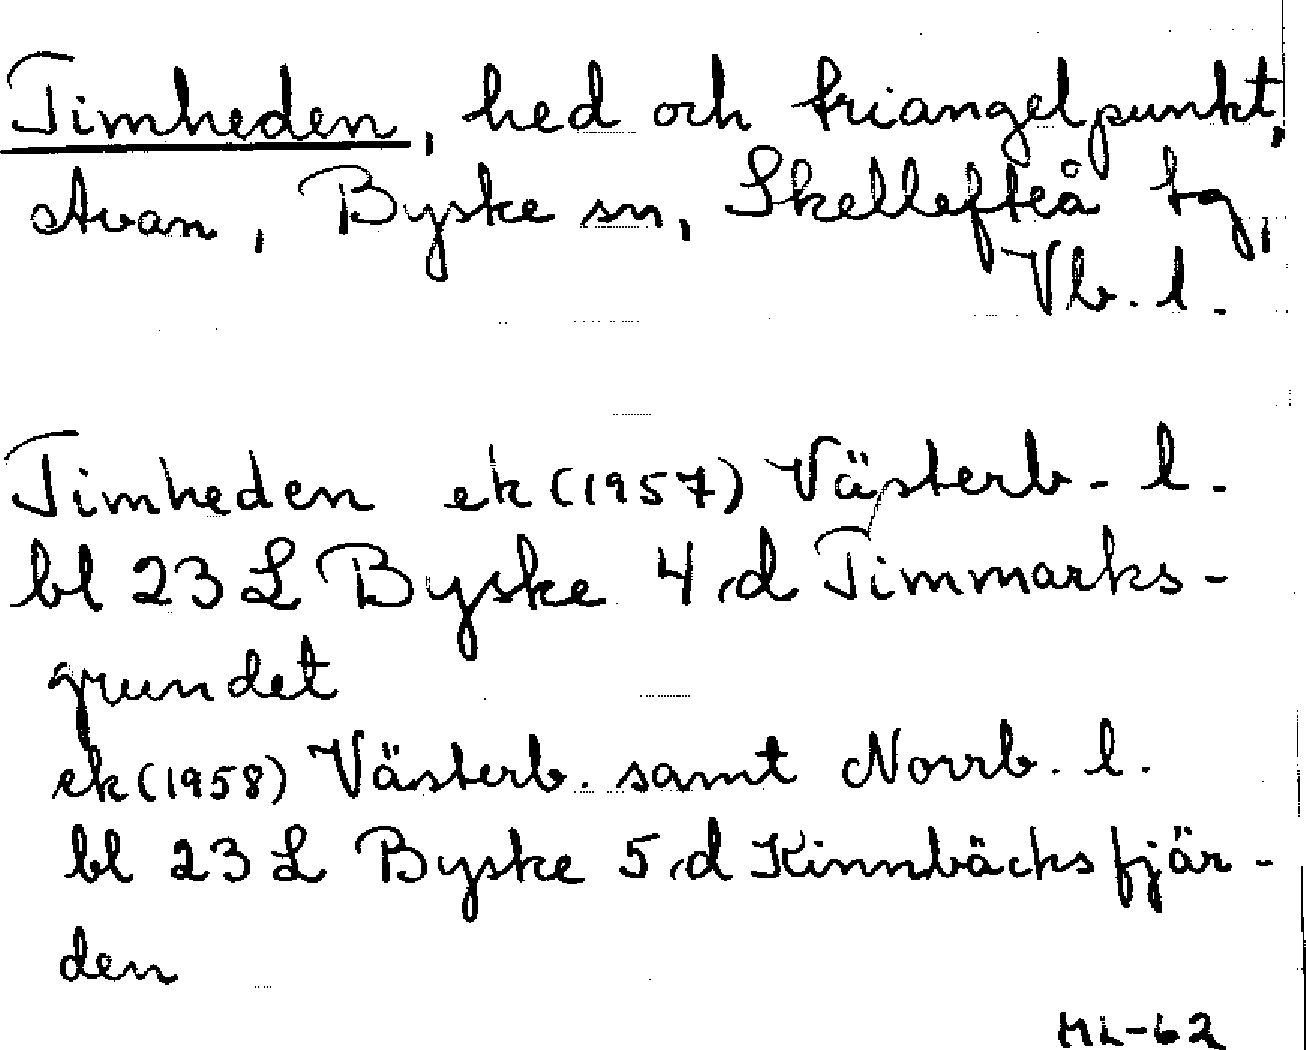 Timheden, hed och triangelpunkt,
Avan, Byske sn, Skellefteå tg,
Vb. l.
Timheden ek (1957) Västerb. l.
bl 23 L Byske 4 d Timmarks-
grundet
ek (1958) Västerb. samt Norrb. l.
bl 23 L Byske 5 d Kinnbäcksfjär-
den
ML-62